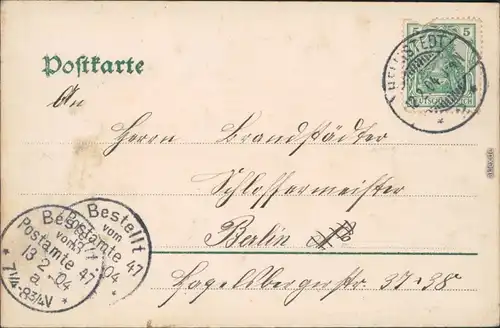 HELMSTEDT
12.2.04.
5 5
DEUTSCHES REICH
Postkarte
An
Herrn Brandstädter
Schlossermeister
Berlin
Hagelsbergerstr. 37-38
Bestellt
vom
Postamte 47
13 2 -04
a
7¼-8¾V
Bestellt
vom
Postamte 47
13 -04